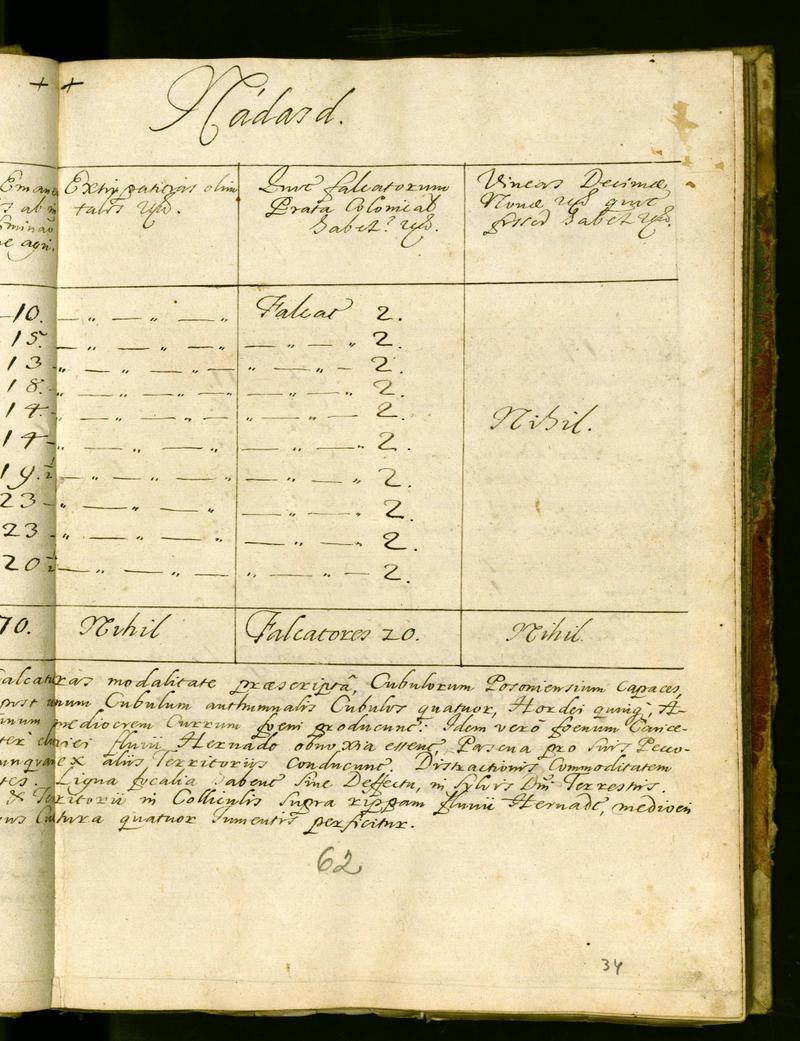 + +
Nádasd.
Extirpationis olim
talis
Quot falcatorum
Prata Colonical
habet?
Vineas Decimæ
Nonæ quot
fossor habet
agri.
10. — „ — „ — „ Falcat 2.
15. — „ — „ — „ — „ — „ 2.
13 „ — „ — „ — „ — „ — 2.
18. „ — „ — „ — „ — „ 2.
14. — „ — „ — „ — „ — „ 2.
14 „ — „ — „ — „ — „ 2.
19.½ „ — „ — „ — „ — „ 2.
23 „ — „ — „ — „ — „ 2.
23 „ — „ — „ — „ — „ 2.
20½ „ — „ — „ — „ — „ — 2.
Nihil.
70. Nihil Falcatores 20. Nihil.
modalitate præscriptâ, Cubulorum Posoniensium Capaces,
unum Cubulum authumnalis Cubulos quatuor, Hordei quinq̃, A-
mediocrem Currum fœni producunt: Idem verò fœnum Carice-
fluvii Hernado obnoxia essent, Pascua pro suis Peco-
ex aliis Territoriis conducunt. Distractionis Commoditatem
Ligna focalia habent sine Deffectu, in Sylvis Dni Terrestris.
& Territorii in Colliculis supra rippam fluvii Hernadt, mediocri
Cultura quatuor Jumentis perficitur.
62
34